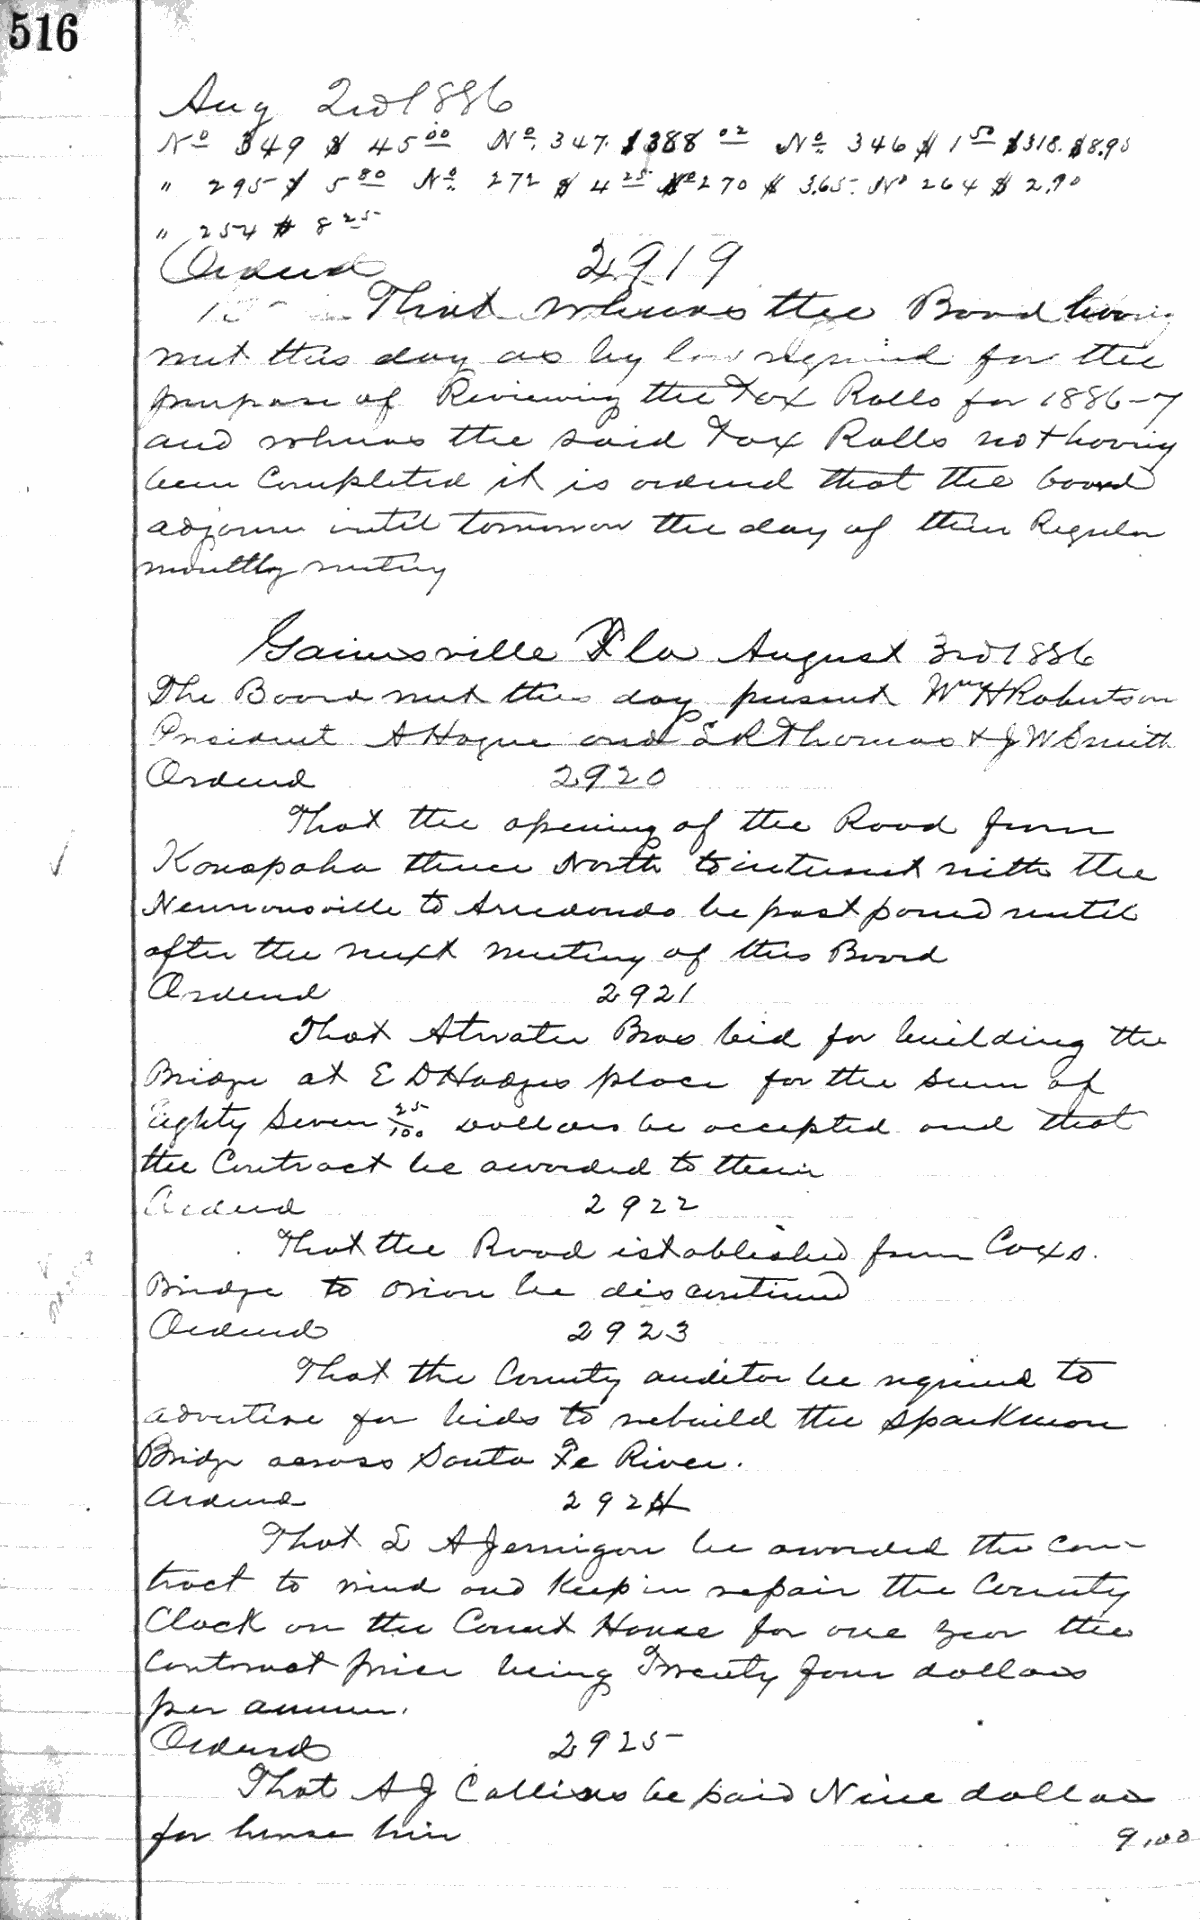 516
Aug 2nd 1886
No 349 $ 45 00 No. 347. $388 02 No. 346 $ 1 50 $318. $8.95
" 295 $ 5 80 No. 272 $ 4 25 No 270 $ 3.65 No 264 $ 2.90
" 254 $ 8 25
Ordered 2919
That whereas the Board having
met this day as by law required for the
purpose of Reviewing the Tax Rolls for 1886-7
and whereas the said Tax Rolls not having
been Completed it is ordered that the board
adjourn until tomorrow the day of their Regular
monthly meeting
Gainesville Fla August 3rd 1886
The Board met this day present Wm H Robertson
President A Hague and L R Thomas & J W Smith
Ordered 2920
That the opening of the Road from
Kanapaha thence North to intersect with the
Newnansville to Arredondo be postponed until
after the next meeting of this Board
Ordered 2921
That Atwater Bros bid for building the
Bridge at E D Hodges place for the sum of
Eighty Seven 25/100 Dollars be accepted and that
the Contract be awarded to them
Ordered 2922
That the Road established from Coxs
Bridge to Orion be discontinued
Ordered 2923
That the County auditor be required to
advertise for bids to rebuild the Sparkman
Bridge across Santa Fe River.
Ordered 2924
That L A Jernigan be awarded the Con-
tract to wind and Keep in repair the County
Clock on the Court House for one year the
Contract price being Twenty four dollars
per annum.
Ordered 2925
That A J Collins be paid Nine dollars
for horse hire 9.00